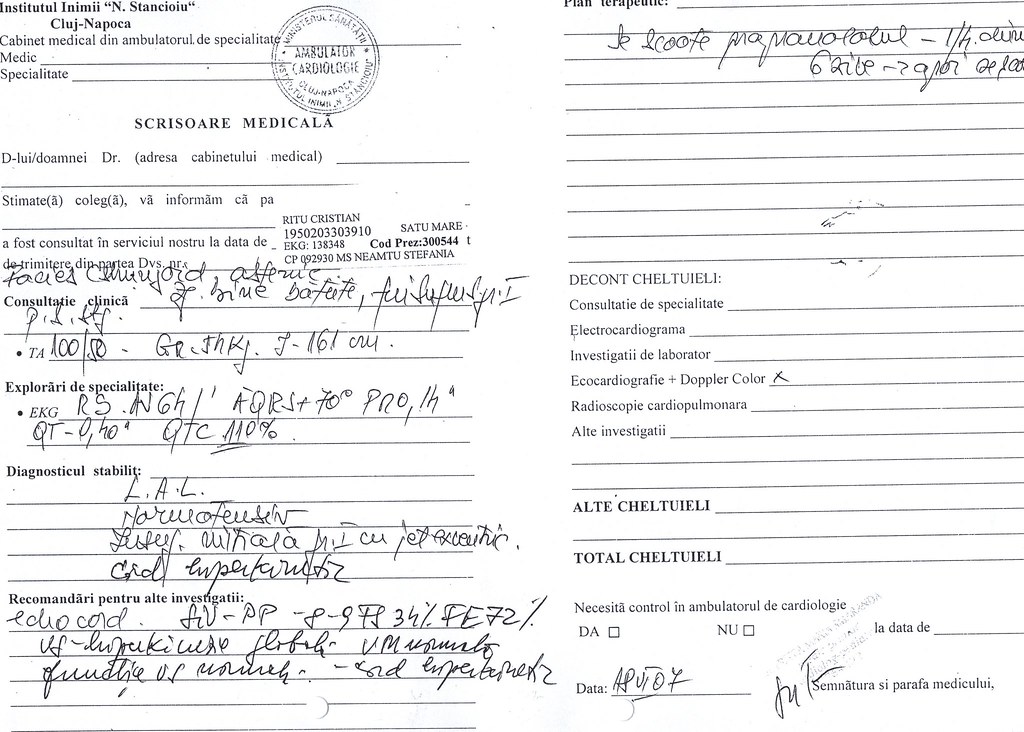 Institutul Inimii “N. Stancioiu“
Cluj-Napoca
Cabinet medical din ambulatorul de specialitate
Medic
Specialitate
MINISTERUL SĂNĂTĂȚII
AMBULATOR
CARDIOLOGIE
CLUJ-NAPOCA
INSTITUTUL INIMII N. STANCIOIU
SCRISOARE MEDICALĂ
D-lui/doamnei Dr. (adresa cabinetului medical)
Stimate(ă) coleg(ă), vă informăm că pa
RITU CRISTIAN
1950203303910 SATU MARE
a fost consultat în serviciul nostru la data de EKG: 138348 Cod Prez:300544 t
de trimitere din partea Dvs. nr. CP 092930 MS NEAMTU STEFANIA
Facies astenic
Consultație clinică bine bătute, gr. I
p. s. stg.
• TA 100/50 - 161 cm.
Explorări de specialitate:
• EKG RS. AV 64/' AQRS+70° PR 0,14"
QT-0,40" QTc 110%
Diagnosticul stabilit:
L.A.L.
Normotensiv
Insuf. mitrală gr. I cu jet excentric.
Cord hiperkinetic
Recomandări pentru alte investigatii:
echocord. SIV-PP -8-9 FS 34% FE 72%
VS-hiperkinezie globală VM normală
funcție VS normală. - cord hiperkinetic
Plan terapeutic:
Se scoate propranololul - 1/4
6 zile
DECONT CHELTUIELI:
Consultatie de specialitate
Electrocardiograma
Investigatii de laborator
Ecocardiografie + Doppler Color X
Radioscopie cardiopulmonara
Alte investigatii
ALTE CHELTUIELI
TOTAL CHELTUIELI
Necesită control în ambulatorul de cardiologie
DA ☐ NU ☐ la data de
Data: 07
Semnătura si parafa medicului,